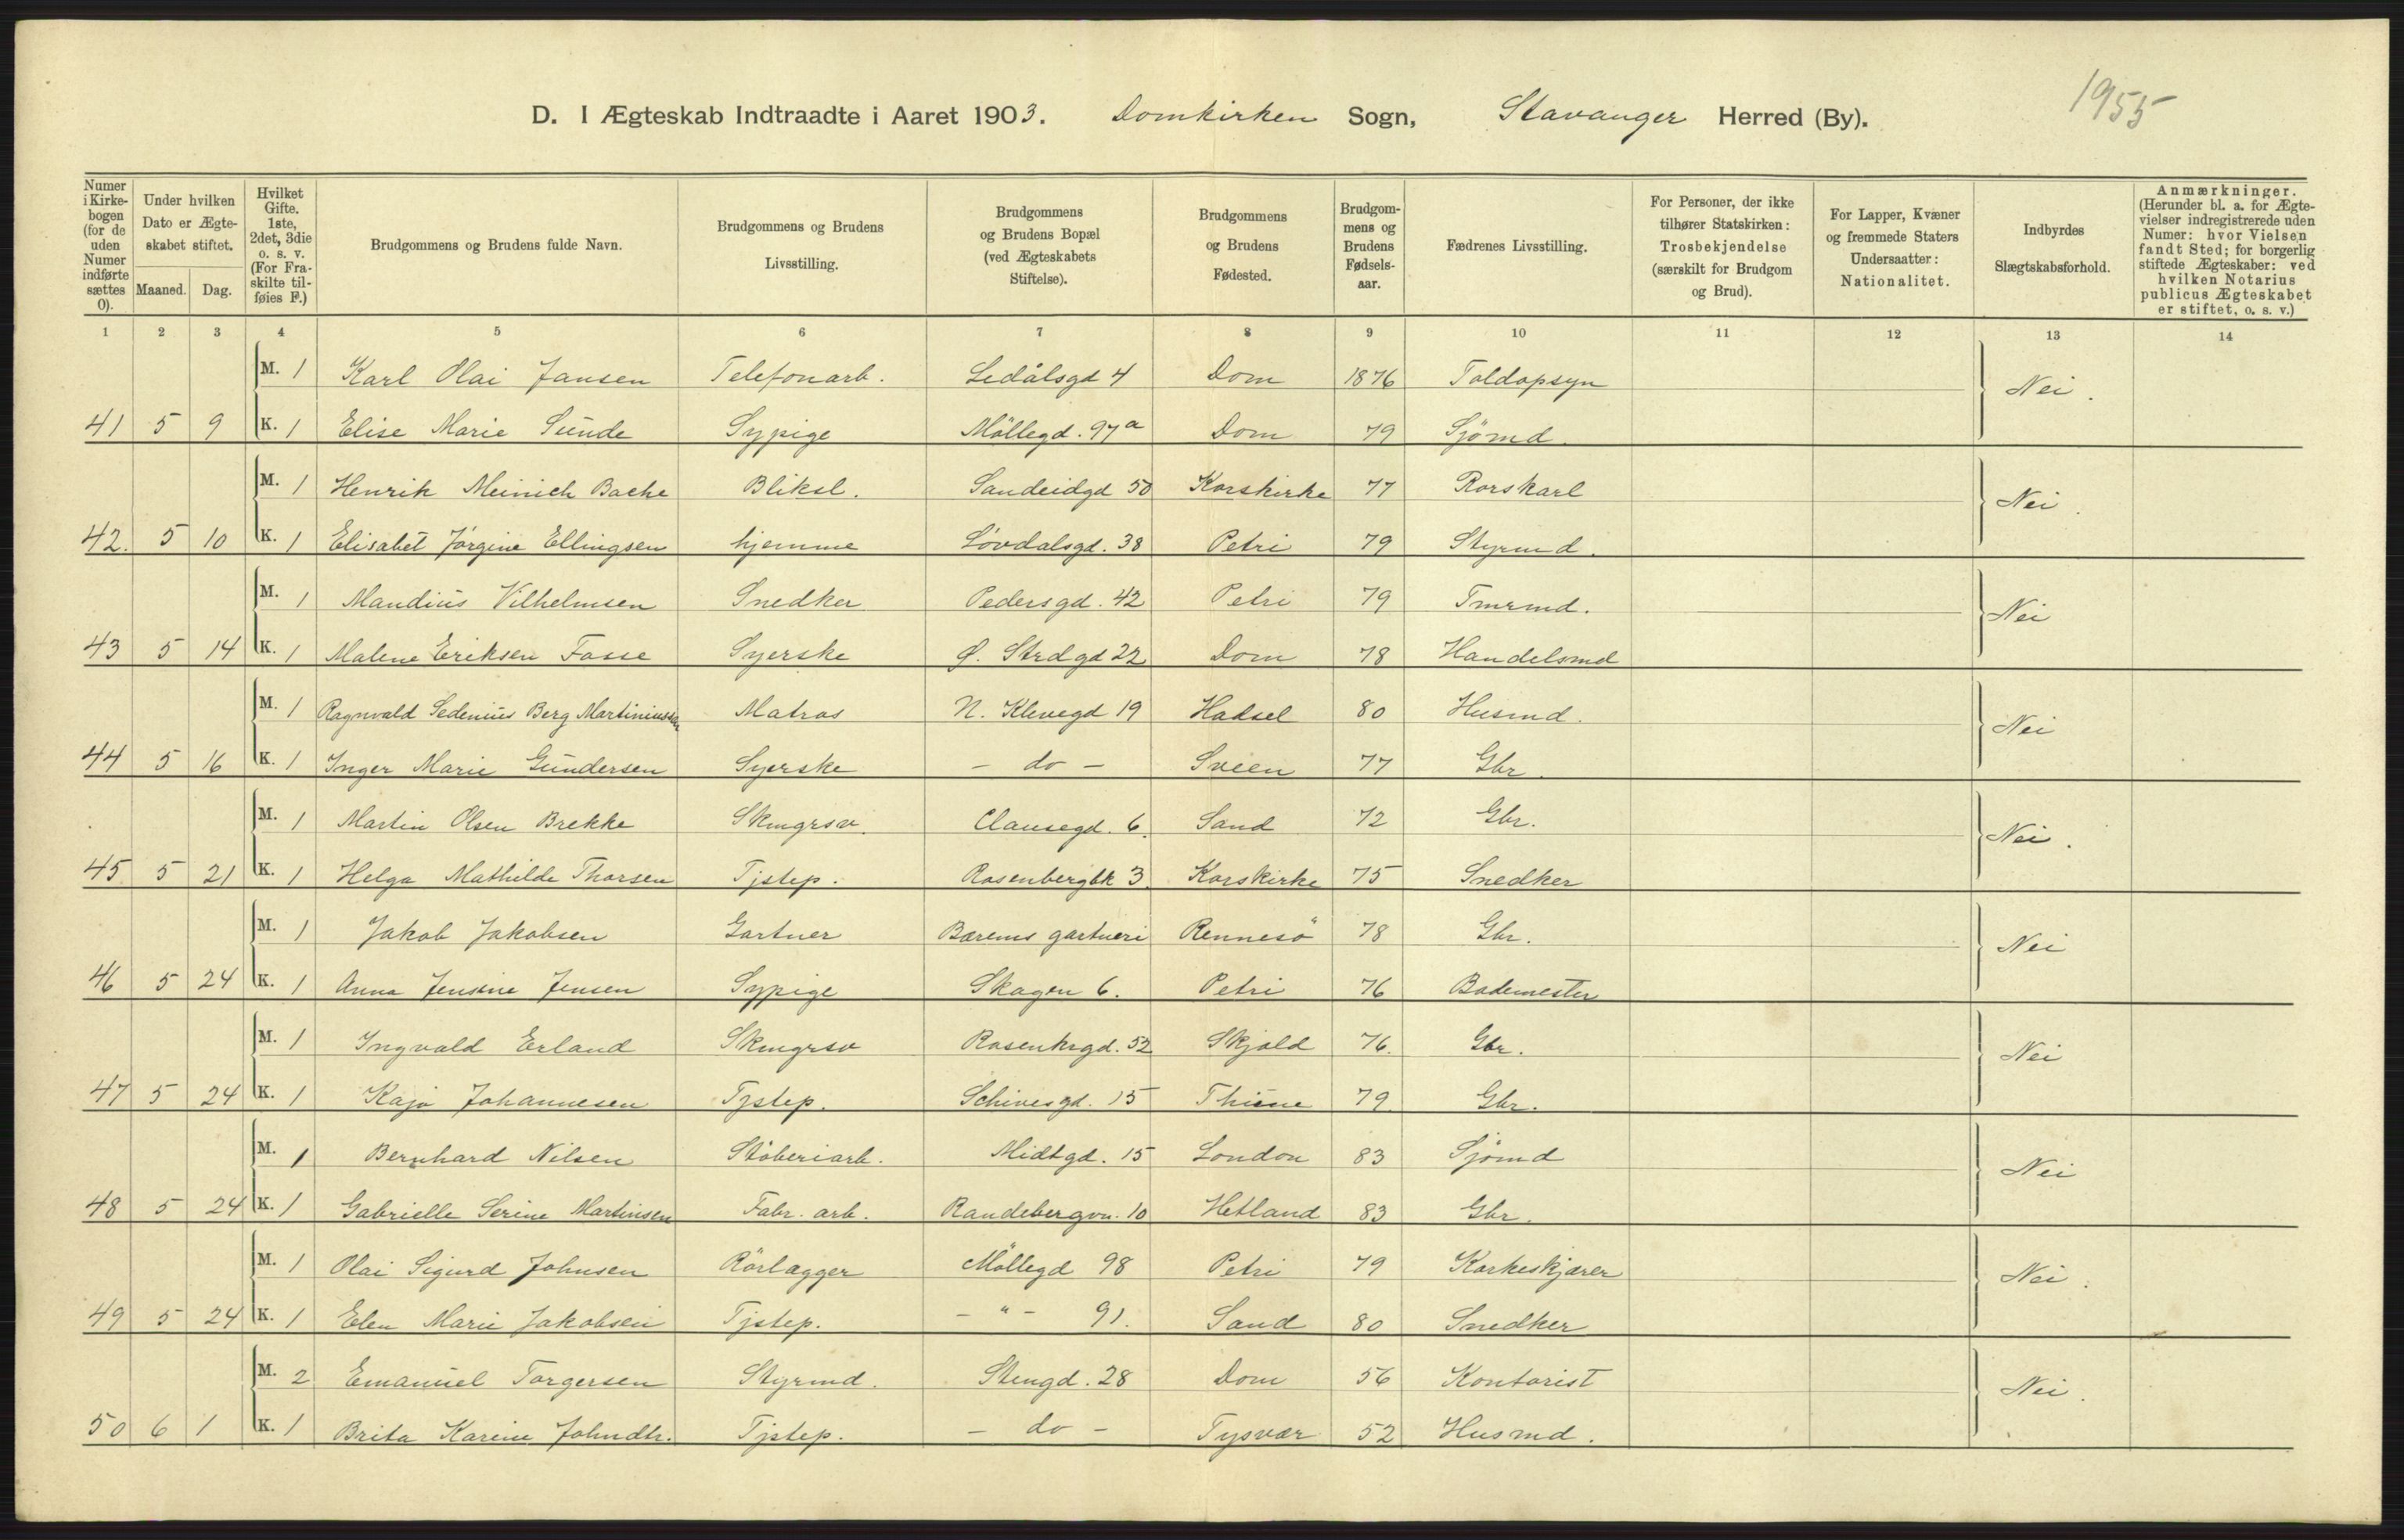 D. I Ægteskab Indtraadte i Aaret 1903. Domkirken Sogn, Stavanger Herred (By).
1955
Numer i Kirkebogen (for de uden Numer indførte sættes 0).
Under hvilken Dato er Ægteskabet stiftet.
Maaned. Dag.
Hvilket Gifte. 1ste, 2det, 3die o. s. v. (For Fraskilte tilføies F.)
Brudgommens og Brudens fulde Navn.
Brudgommens og Brudens Livsstilling.
Brudgommens og Brudens Bopæl (ved Ægteskabets Stiftelse).
Brudgommens og Brudens Fødested.
Brudgommens og Brudens Fødselsaar.
Fædrenes Livsstilling.
For Personer, der ikke tilhører Statskirken: Trosbekjendelse (særskilt for Brudgom og Brud).
For Lapper, Kvæner og fremmede Staters Undersaatter: Nationalitet.
Indbyrdes Slægtskabsforhold.
Anmærkninger. (Herunder bl. a. for Ægtevielser indregistrerede uden Numer: hvor Vielsen fandt Sted; for borgerlig stiftede Ægteskaber: ved hvilken Notarius publicus Ægteskabet er stiftet, o. s. v.)
1 2 3 4 5 6 7 8 9 10 11 12 13 14
M. 1 Karl Olai Jansen Telefonarb. Ledålsgd 4 Dom 1876 Toldopsyn Nei.
41 5 9 K. 1 Elise Marie Sunde Sypige Möllegd. 97a Dom 79 Sjömd.
M. 1 Henrik Meinich Bache Bliksl. Sandeidgd 50 Korskirke 77 Rorskarl Nei.
42. 5 10 K. 1 Elisabet Jørgine Ellingsen hjemme Lövdalsgd. 38 Petri 79 Styrmd.
M. 1 Mandius Vilhelmsen Snedker Pedersgd. 42 Petri 79 Tmrmd. Nei
43 5 14 K. 1 Malene Eriksen Fosse Syerske Ø. Strdgd 22 Dom 78 Handelsmd
M. 1 Ragnvald Sedenius Berg Martiniussen Matros N. Klevegd 19 Hadsel 80 Husmd. Nei
44 5 16 K. 1 Inger Marie Gundersen Syerske - do - Sveen 77 Gbr.
M. 1 Martin Olsen Brekke Skmgrsv. Clausegd. 6. Sand 72 Gbr. Nei.
45 5 21 K. 1 Helga Mathilde Thorsen Tjstep. Rosenbergbk 3. Korskirke 75 Snedker
M. 1 Jakob Jakobsen Gartner Barems gartneri Rennesö 78 Gbr. Nei
46 5 24 K. 1 Anna Jensine Jensen Sypige Skagen 6. Petri 76 Bademester
M. 1 Ingvald Erland Skmgrsv Rosenkrgd. 52 Skjold 76. Gbr. Nei
47 5 24 K. 1 Kaja Johannesen Tjstep. Schivesgd. 15 Thime 79. Gbr.
M. 1 Bernhard Nilsen Stöberiarb. Midtgd. 15 London 83 Sjömd Nei
48 5 24 K. 1 Gabrielle Serine Martinsen Fabr. arb. Randebergvn. 10 Hetland 83 Gbr.
M. 1 Olai Sigurd Johnsen Rörlægger Möllegd 98 Petri 79 Korkeskjærer Nei.
49 5 24 K. 1 Elen Marie Jakobsen Tjstep. - " - 91. Sand 80 Snedker
M. 2 Emanuel Torgersen Styrmd. Stengd. 28 Dom 56 Kontorist Nei.
50 6 1 K. 1 Brita Karine Johndtr. Tjstep. - do - Tysvær 52 Husmd.